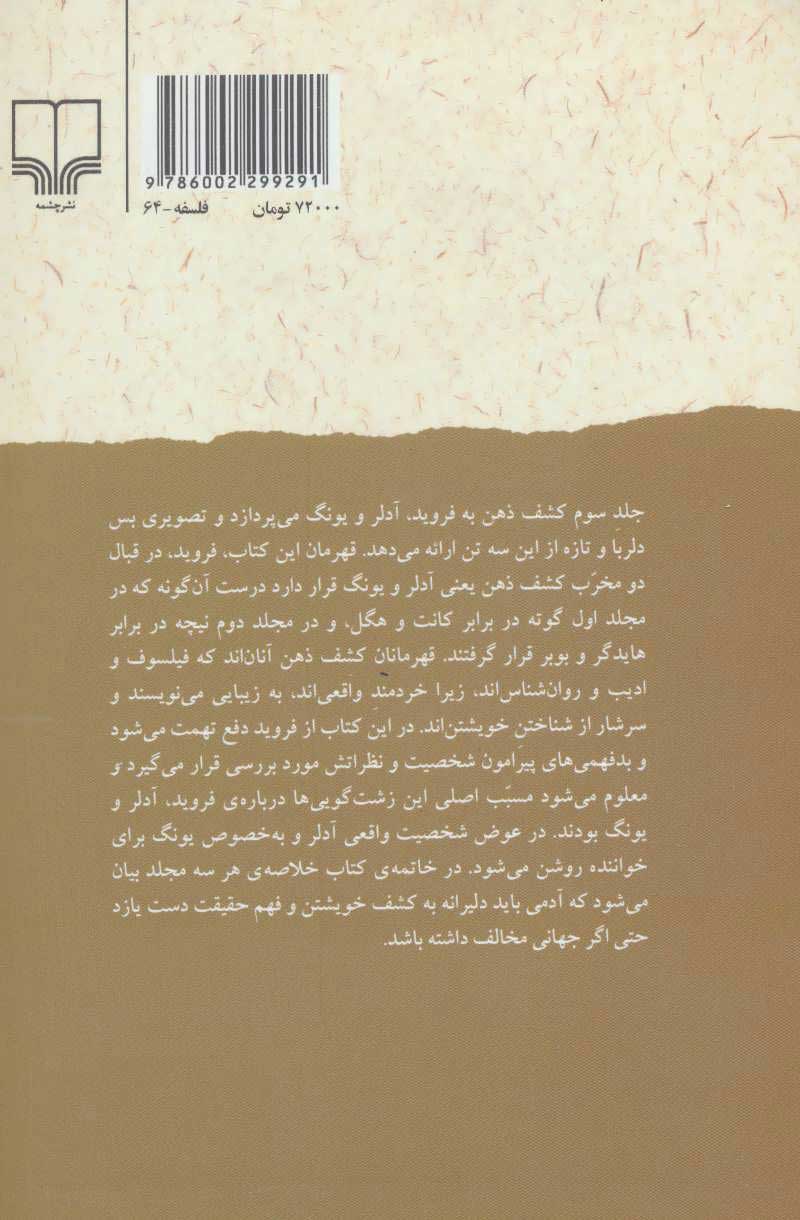 9 786002 299291
۷۲۰۰۰ تومان فلسفه - ۶۴
نشرچشمه
جلد سوم کشف ذهن به فروید، آدلر و یونگ می‌پردازد و تصویری بس
دلربا و تازه از این سه تن ارائه می‌دهد. قهرمان این کتاب، فروید، در قبال
دو مخرّب کشف ذهن یعنی آدلر و یونگ قرار دارد درست آن‌گونه که در
مجلد اول گوته در برابر کانت و هگل، و در مجلد دوم نیچه در برابر
هایدگر و بوبر قرار گرفتند. قهرمانان کشف ذهن آنان‌اند که فیلسوف و
ادیب و روان‌شناس‌اند، زیرا خردمندِ واقعی‌اند، به زیبایی می‌نویسند و
سرشار از شناختنِ خویشتن‌اند. در این کتاب از فروید دفع تهمت می‌شود
و بدفهمی‌های پیرامون شخصیت و نظراتش مورد بررسی قرار می‌گیرد و
معلوم می‌شود مسبّب اصلی این زشت‌گویی‌ها درباره‌ی فروید، آدلر و
یونگ بودند. در عوض شخصیت واقعی آدلر و به‌خصوص یونگ برای
خواننده روشن می‌شود. در خاتمه‌ی کتاب خلاصه‌ی هر سه مجلد بیان
می‌شود که آدمی باید دلیرانه به کشف خویشتن و فهم حقیقت دست یازد
حتی اگر جهانی مخالف داشته باشد.